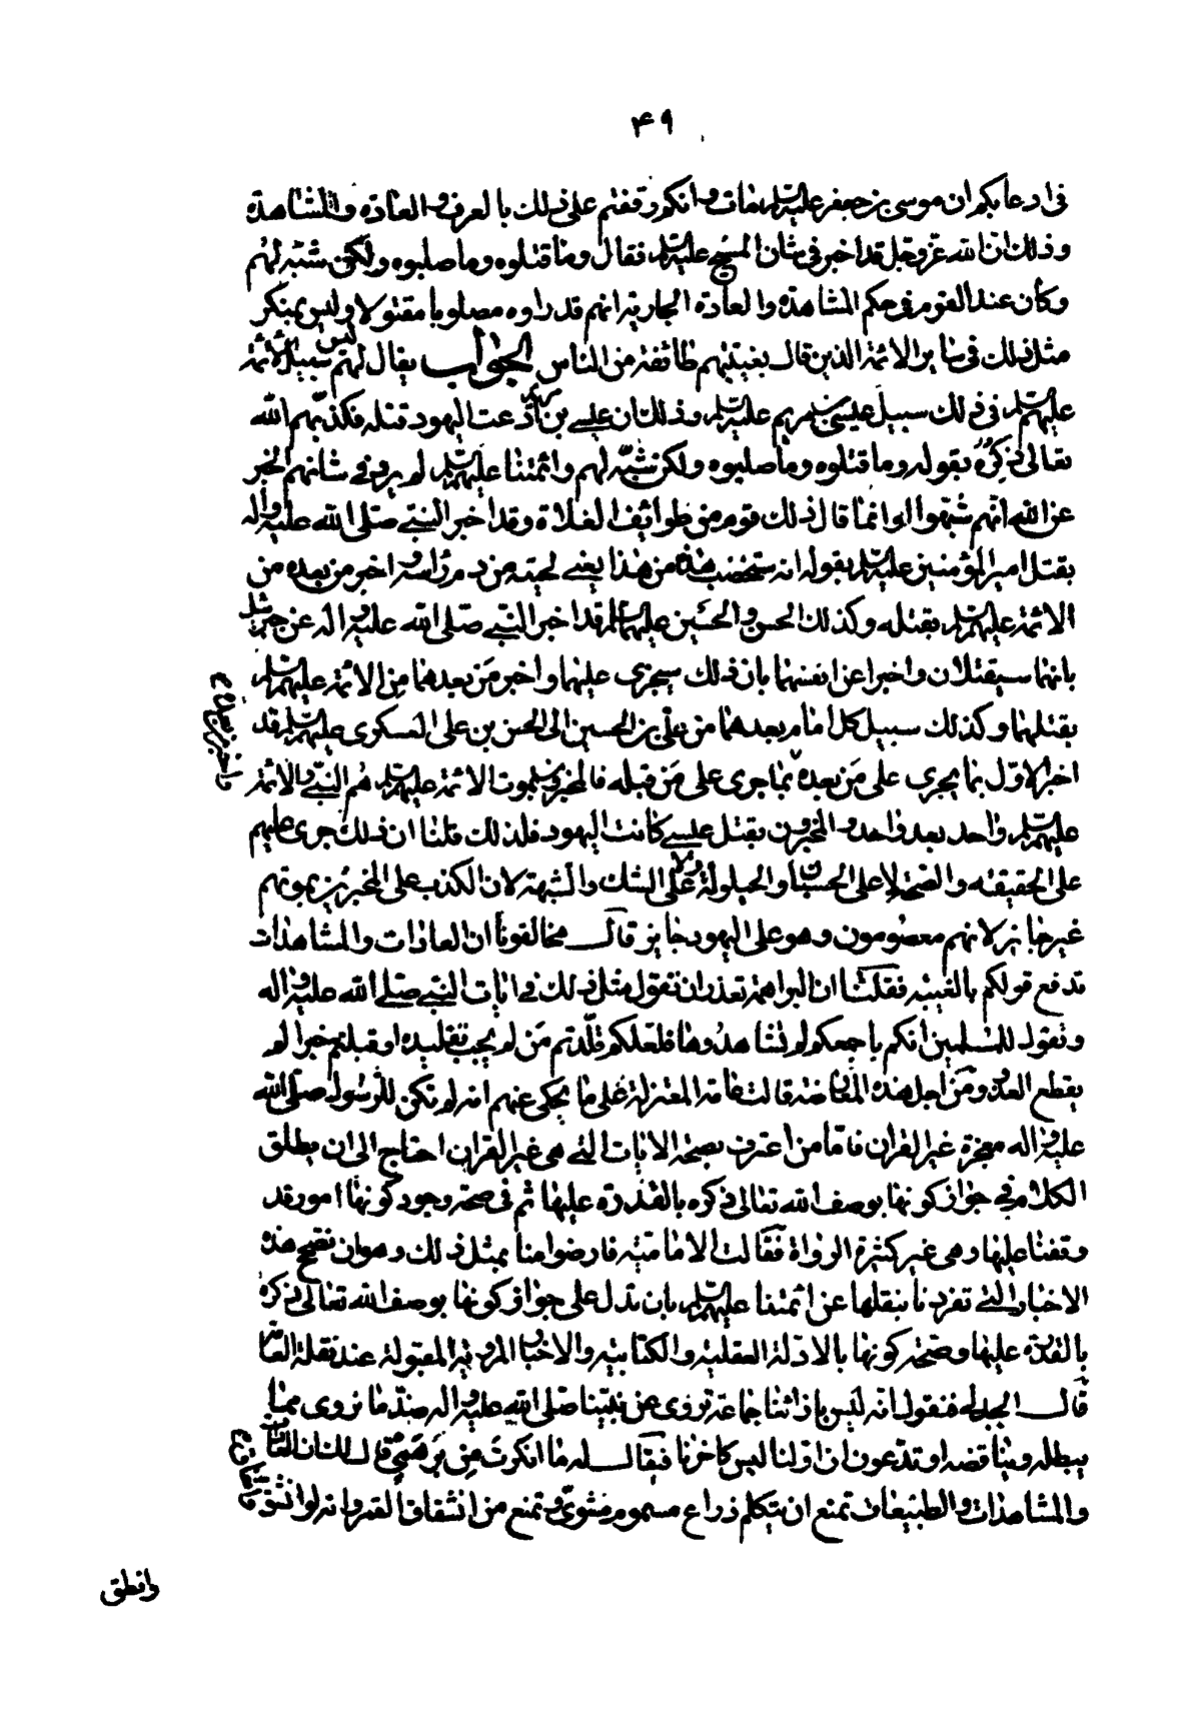 ۴۹
فى ادعائكم ان موسى بن جعفر عليه السلام مات وانكم وقفتم على ذلك بالعرف والعادة والمشاهدة
وذلك ان الله عز وجل قد اخبر فى شان المسيح عليه السلام فقال وما قتلوه وما صلبوه ولكن شبه لهم
وكان عند القوم فى حكم المشاهدة والعادة الجارية انهم قد راوه مصلوبا مقتولا وليس بمنكر
مثل ذلك فى سائر الائمة الذين قال بغيبتهم طائفة من الناس الجواب يقال لهم ليس سبيل الائمة
عليهم السلام فى ذلك سبيل عيسى بن مريم عليه السلام وذلك ان عيسى بن مريم ادعت اليهود قتله فكذبهم الله
تعالى ذكره بقوله وما قتلوه وما صلبوه ولكن شبه لهم وائمتنا عليهم السلام لم يرد فى شانهم الخبر
عن الله انهم شبهوا وانما قال ذلك قوم من طوائف الغلاة وقد اخبر النبى صلى الله عليه واله
بقتل امير المؤمنين عليه السلام بقوله انه ستخضب هذه من هذا يعنى لحيته من دم راسه واخبر من بعده من
الائمة عليهم السلام بقتله وكذلك الحسن والحسين عليهما السلام قد اخبر النبى صلى الله عليه واله عن جبرئيل
بانهما سيقتلان واخبرا عن انفسهما بان ذلك سيجرى عليهما واخبر من بعدهما من الائمة عليهم السلام
بقتلهما وكذلك سبيل كل امام بعدهما من على بن الحسين الى الحسن بن على العسكرى عليهم السلام قد
اخبر الاول بما يجرى على من بعده بما جرى على من قبله فالمخبرون بموت الائمة عليهم السلام هم النبى والائمة
عليهم السلام واحد بعد واحد والمخبرون بقتل عيسى كانت اليهود فلذلك قلنا ان ذلك جرى عليهم
على الحقيقة والصحة لا على الحسبان والحيلولة ولا على الشك والشبهة لان الكذب على المخبرين بموتهم
غير جايز لانهم معصومون وهو على اليهود جايز قال مخالفونا ان العادات والمشاهدات
تدفع قولكم بالغيبة فقلنا ان البراهمة تقدر ان تقول مثل ذلك فى ايات النبى صلى الله عليه واله
وتقول للمسلمين انكم باجمعكم لم تشاهدوها فلعلكم قلدتم من لم يجب تقليده او قبلتم خبرا لم
يقطع العذر ومن اجل هذه المعارضة قالت عامة المعتزلة على ما يحكى عنهم انه لم تكن للرسول صلى الله
عليه واله معجزة غير القران فاما من اعترف بصحة الايات التى هى غير القران احتاج الى ان يطلق
الكلام فى جواز كونها بوصف الله تعالى ذكره بالقدرة عليها ثم فى صحة وجود كونها امور قد
وقفنا عليها وهى غير كثيرة الرواة فقالت الامامية فارضوا منا بمثل ذلك وهو ان نصحح هذه
الاخبار التى تفردنا بنقلها عن ائمتنا عليهم السلام بان تدل على جواز كونها بوصف الله تعالى ذكره
بالقدرة عليها وصحة كونها بالادلة العقلية والكتابية والاخبار المروية المقبولة عند نقلة العامة
قال الجدلى فنقول انه ليس بازائنا جماعة تروى عن نبينا صلى الله عليه واله ضد ما نروى مما
يبطله ويناقضه او تدعون ان اولنا ليس كاخرنا فيقال له ما انكرت من برهمى قال لك ان العادات
والمشاهدات والطبيعات تمنع ان يتكلم ذراع مسموم مشوى وتمنع من انشقاق القمر وانه لو انشق
وانفلق